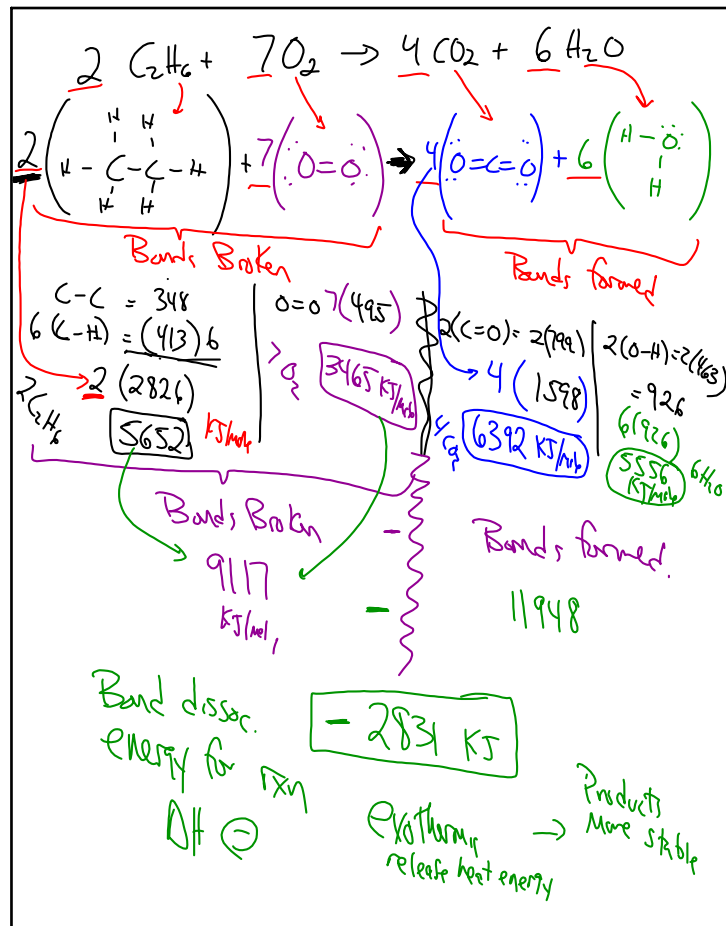 2 C₂H₆ + 7O₂ → 4CO₂ + 6H₂O
2 ( H H
H - C - C - H
H H ) + 7 ( O=O ) → 4 ( O=C=O ) + 6 ( H - O
H )
Bonds Broken
Bonds formed
C-C = 348
6 (C-H) = (413)6
2 (2826)
2C₂H₆
5652 KJ/mole
O=O 7(495)
7O₂
3465 KJ/mole
2(C=O) = 2(799)
4 (1598)
6392 KJ/mole
2(O-H) = 2(463)
= 926
6(926)
5556 KJ/mole
6H₂O
Bonds Broken
9117
KJ/mol,
-
-
Bonds formed.
11948
Bond dissoc.
energy for rxn
ΔH ⊖
- 2831 KJ
exothermic
release heat energy
→ Products
More stable